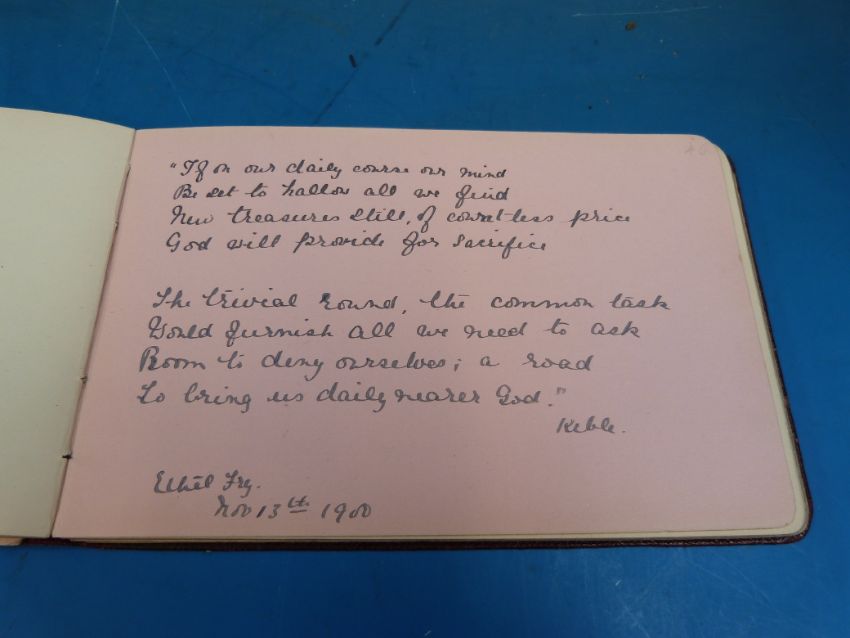 "If on our daily course our mind
Be set to hallow all we find
New treasures still, of countless price
God will provide for sacrifice
The trivial round, the common task
Would furnish all we need to ask
Room to deny ourselves; a road
To bring us daily nearer God."
Keble.
Ethel Fry.
Nov 13th 1900